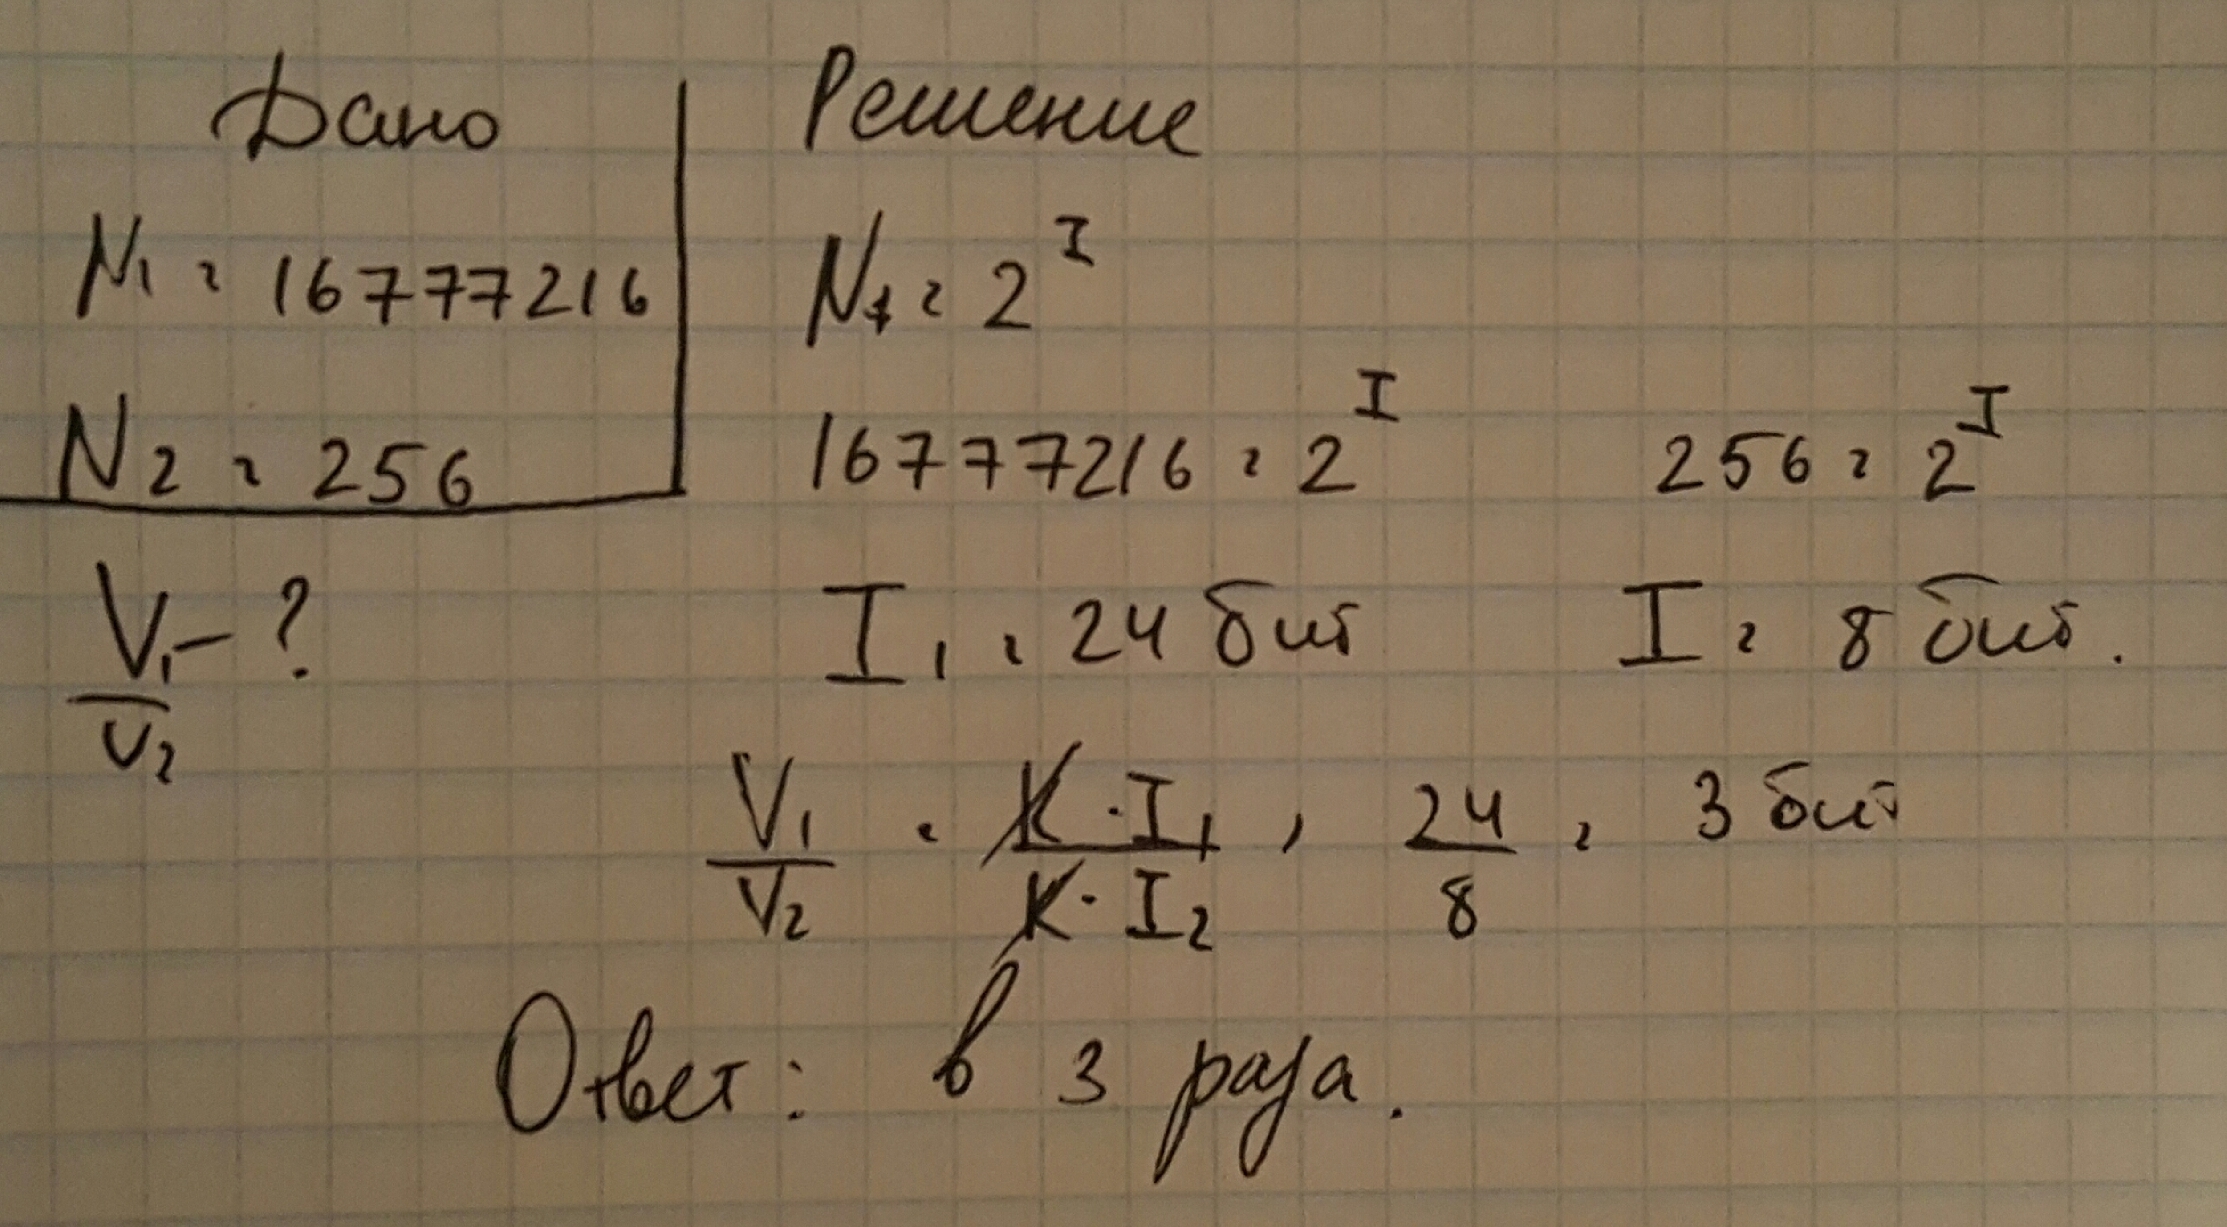 Дано
N1 = 16777216
N2 = 256
V1 - ?
V2
Решение
N1 = 2^I
16777216 = 2^I 256 = 2^I
I1 = 24 бит I = 8 бит.
V1/V2 = K·I1/K·I2 = 24/8 = 3 бит
Ответ: в 3 раза.